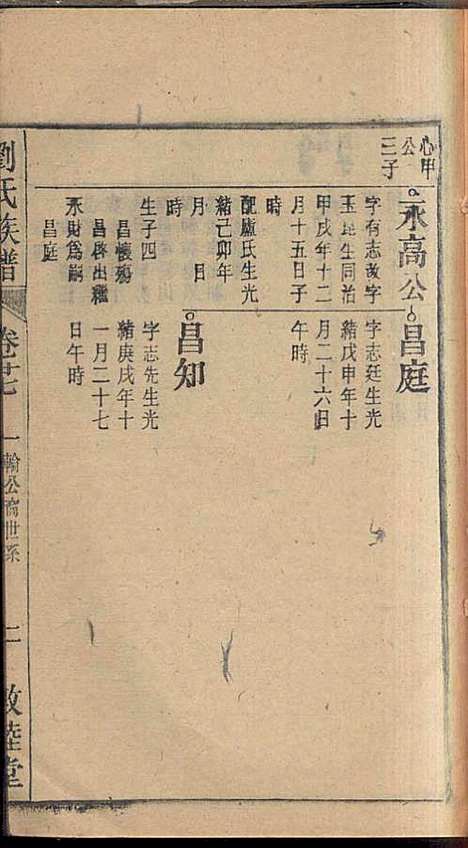 心甲
公
三子
永高公
字有志敌字
玉琨生同治
甲戌年十二
月十五日子
時
配盧氏生光
緒己卯年
月 日
時
生子四
昌懷殤
昌啓出繼
永財爲嗣
昌庭
昌庭
字志廷生光
緒戊申年十
月二十六日
午時
昌知
字志先生光
緒庚戌年十
一月二十七
日午時
劉氏族譜
卷廿七
一輪公裔世系
二
敦睦堂